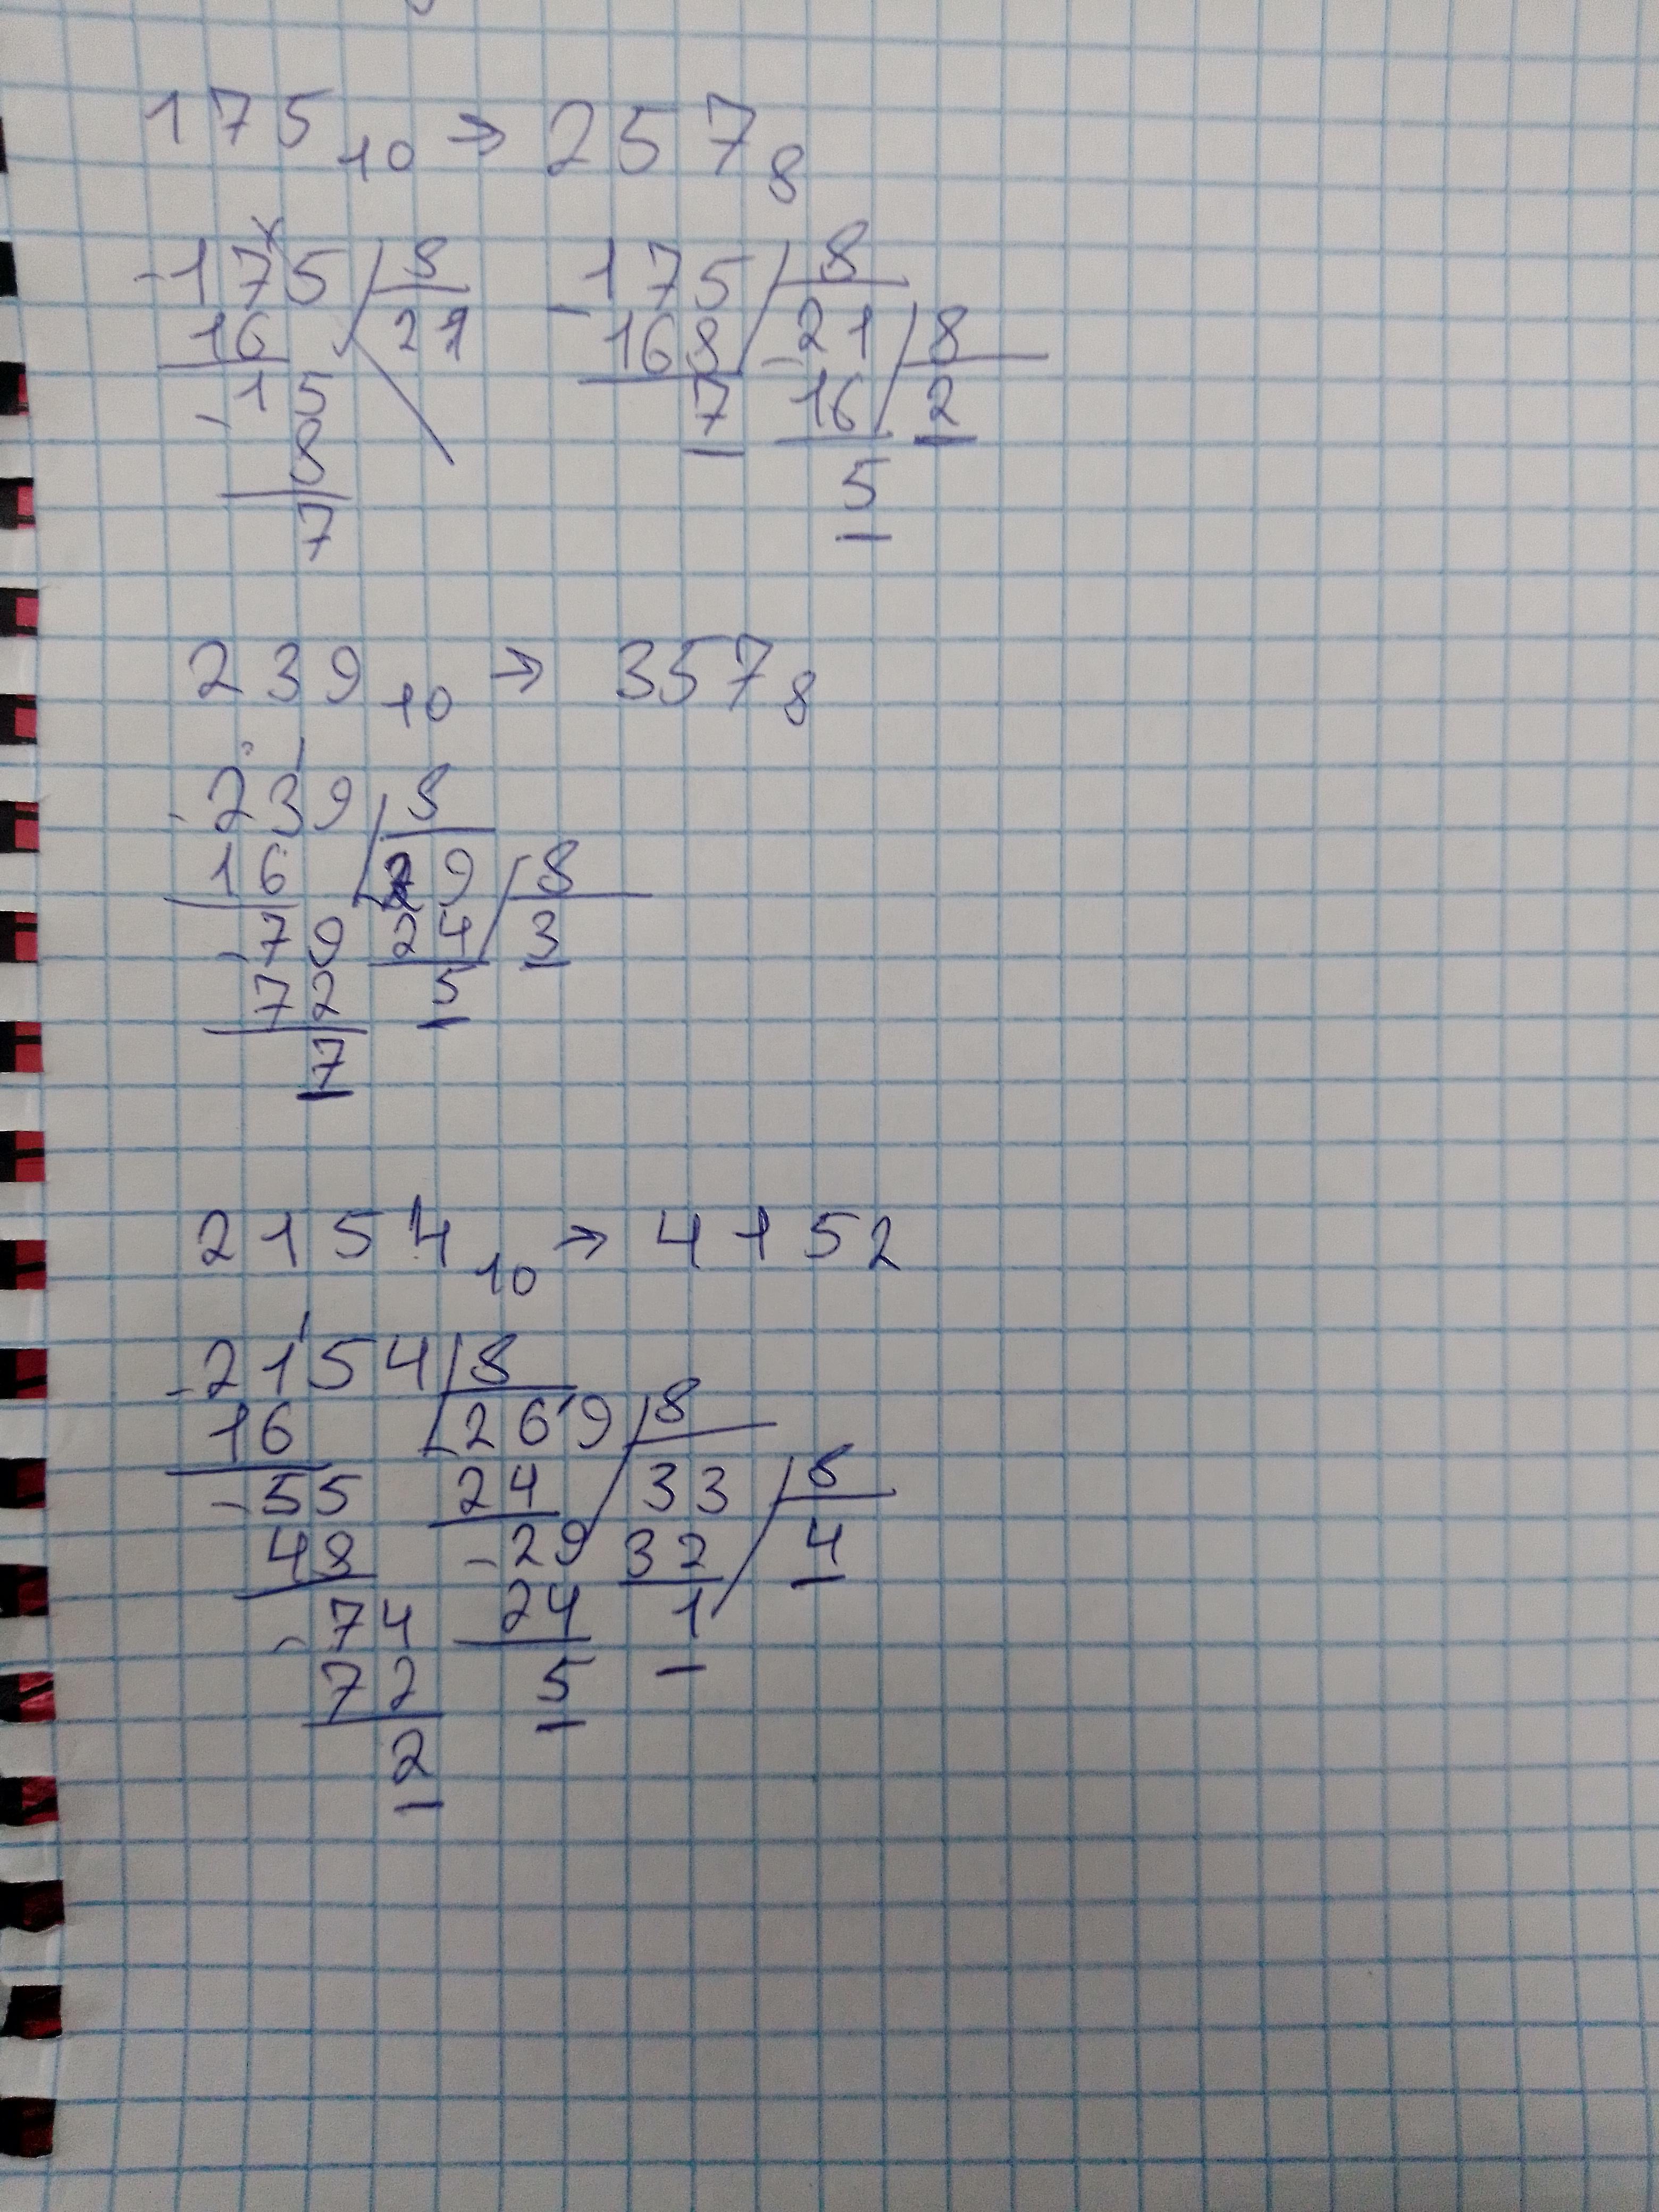 175₁₀ → 257₈
-175 8 -175 8
16 21 168 -21 8
-15 7 16 2
8 5
7
239₁₀ → 357₈
-239 8
16 29 8
-79 24 3
72 5
7
2154₁₀ → 4152
-2154 8
16 269 8
-55 24 33 8
48 -29 32 4
-74 24 1
72 5
2